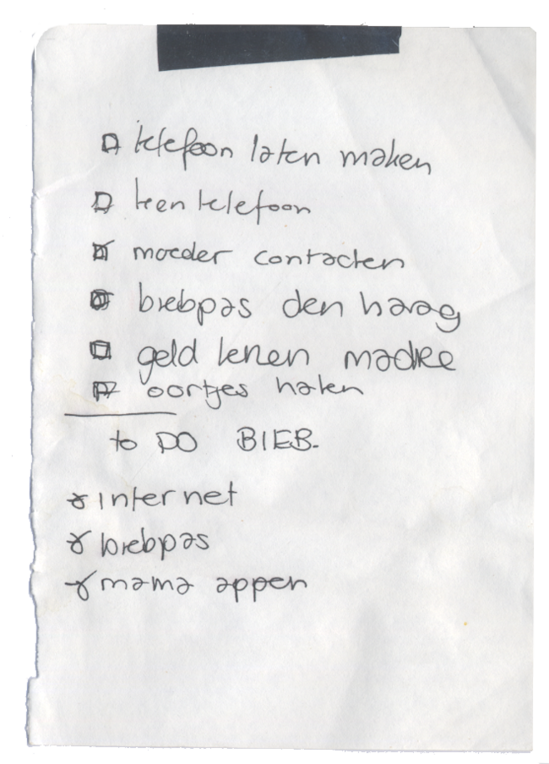 telefoon laten maken
leen telefoon
moeder contacten
biebpas den haag
geld lenen madre
oortjes halen
to DO BIEB.
internet
biebpas
mama appen